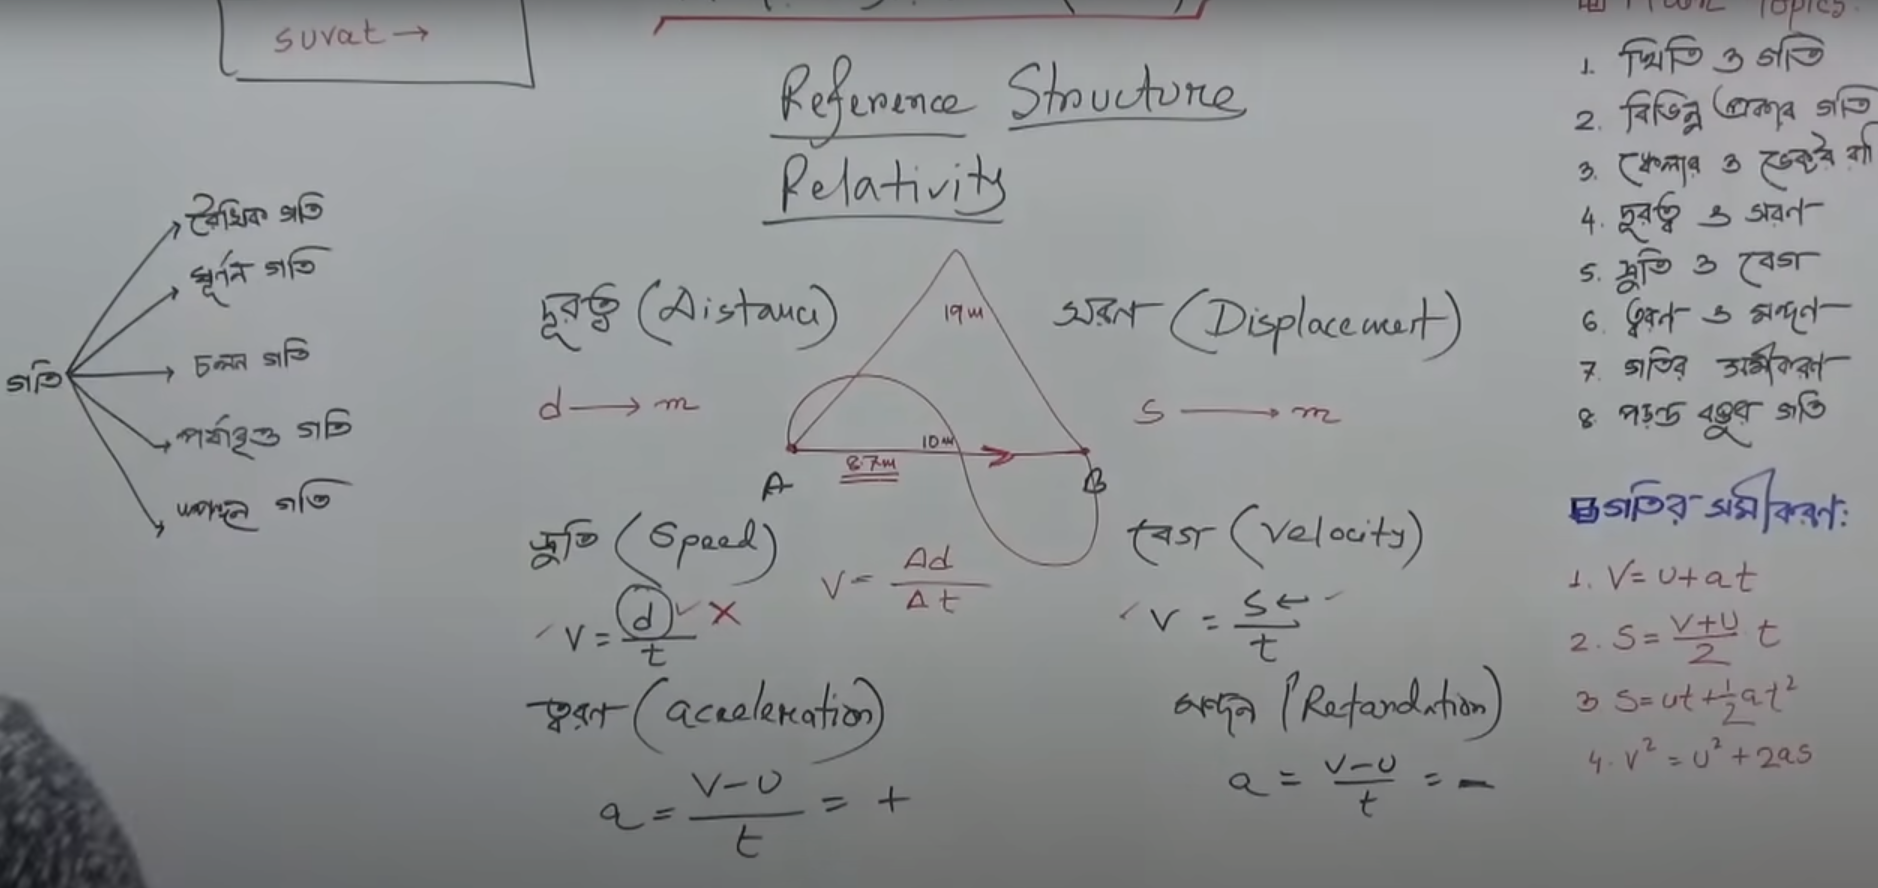 suvat →
Reference Structure
Relativity
গতি
রৈখিক গতি
ঘূর্ণন গতি
চলন গতি
পর্যাবৃত্ত গতি
স্পন্দন গতি
দূরত্ব (Distance)
d → m
সরণ (Displacement)
S → m
19m
10m
8.7m
A
B
দ্রুতি (Speed)
V = d/t
V = Δd/Δt
বেগ (Velocity)
V = S/t
ত্বরণ (acceleration)
a = V-U/t = +
মন্দন (Retardation)
a = V-U/t = -
Topics:
1. স্থিতি ও গতি
2. বিভিন্ন প্রকার গতি
3. স্কেলার ও ভেক্টর
4. দূরত্ব ও সরণ
5. দ্রুতি ও বেগ
6. ত্বরণ ও মন্দন
7. গতির সমীকরণ
8. পড়ন্ত বস্তুর গতি
গতির সমীকরণ:
1. V = U + at
2. S = V+U/2 t
3 S = ut + 1/2 at²
4. V² = U² + 2as